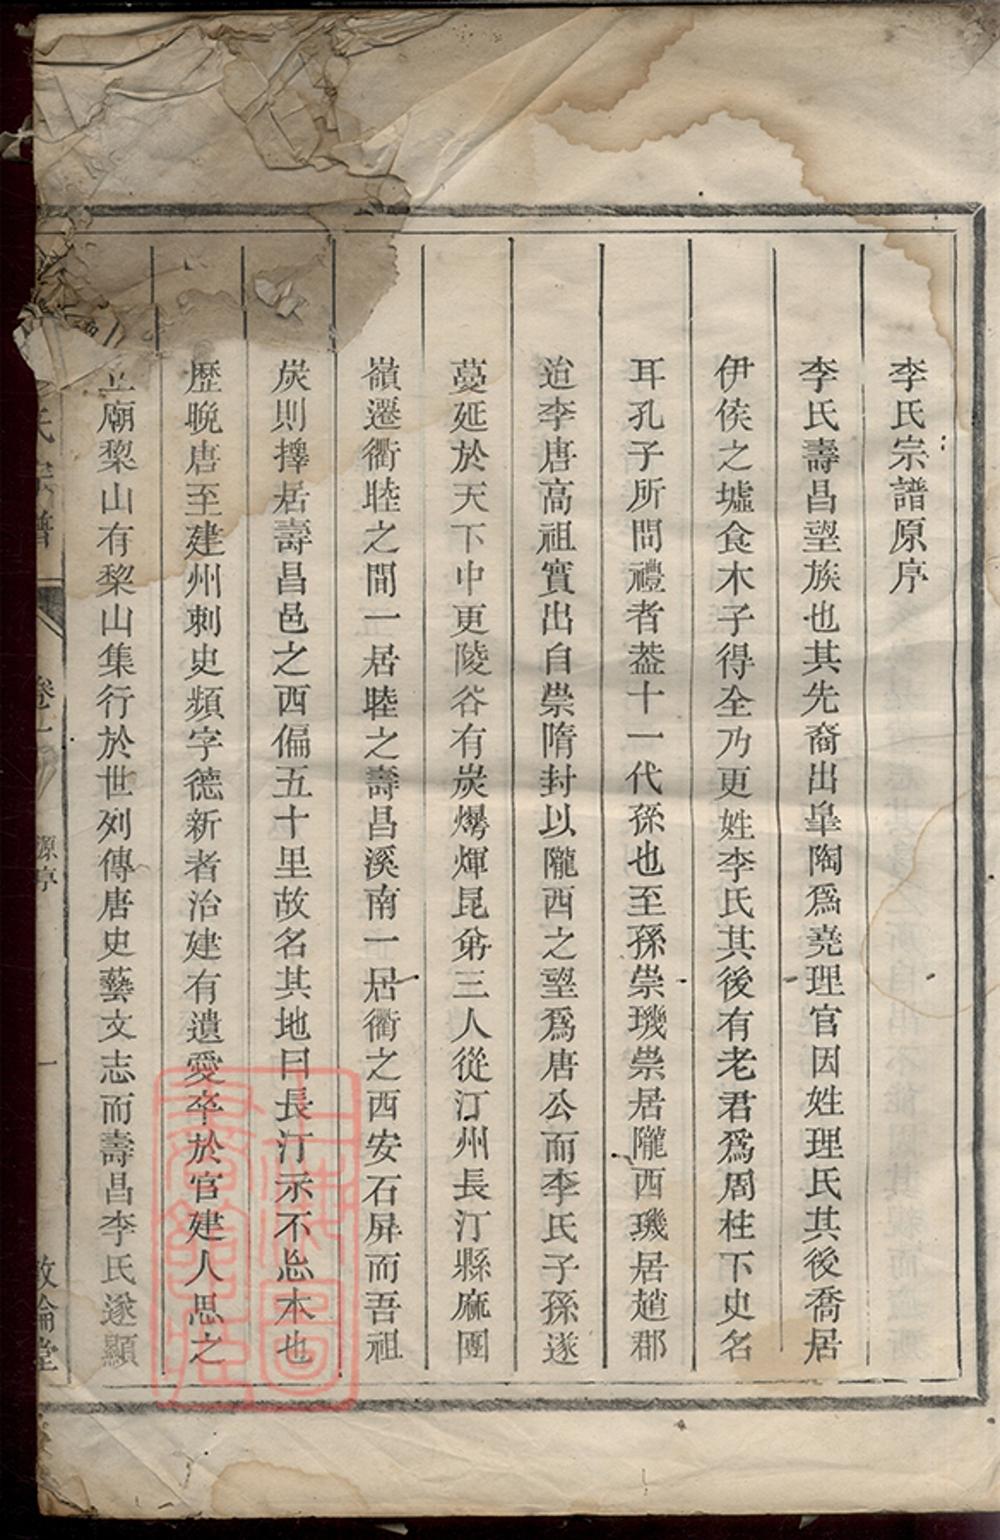 李氏宗譜原序
李氏壽昌望族也其先裔出臯陶爲堯理官因姓理氏其後喬居
伊侯之墟食木子得全乃更姓李氏其後有老君爲周柱下史名
耳孔子所問禮者葢十一代孫也至孫崇璣崇居隴西璣居趙郡
迨李唐高祖實出自崇隋封以隴西之望爲唐公而李氏子孫遂
蔓延於天下中更陵谷有炭爆煇昆弟三人從汀州長汀縣麻團
嶺遷衢睦之間一居睦之壽昌溪南一居衢之西安石屏而吾祖
炭則擇居壽昌邑之西偏五十里故名其地曰長汀示不忘本也
歷晚唐至建州刺史頻字德新者治建有遺愛卒於官建人思之
立廟棃山有棃山集行於世列傳唐史藝文志而壽昌李氏遂顯
氏宗譜
卷
源序
一
敦倫堂
上海圖書館藏